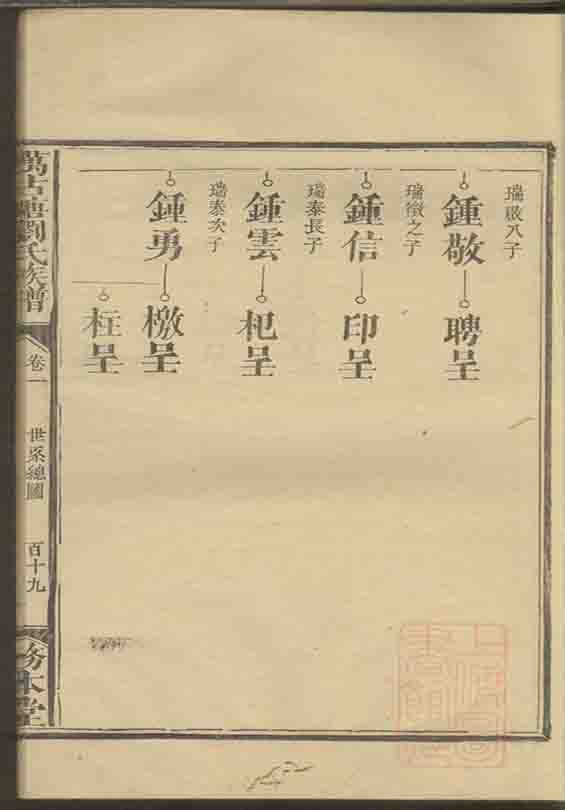 瑞啟八子
鍾敬
聘呈
瑞徵之子
鍾信
印呈
瑞泰長子
鍾雲
杞呈
瑞泰次子
鍾勇
檄呈
枉呈
萬古塘劉氏族譜
卷一
世系總圖
百十九
務本堂